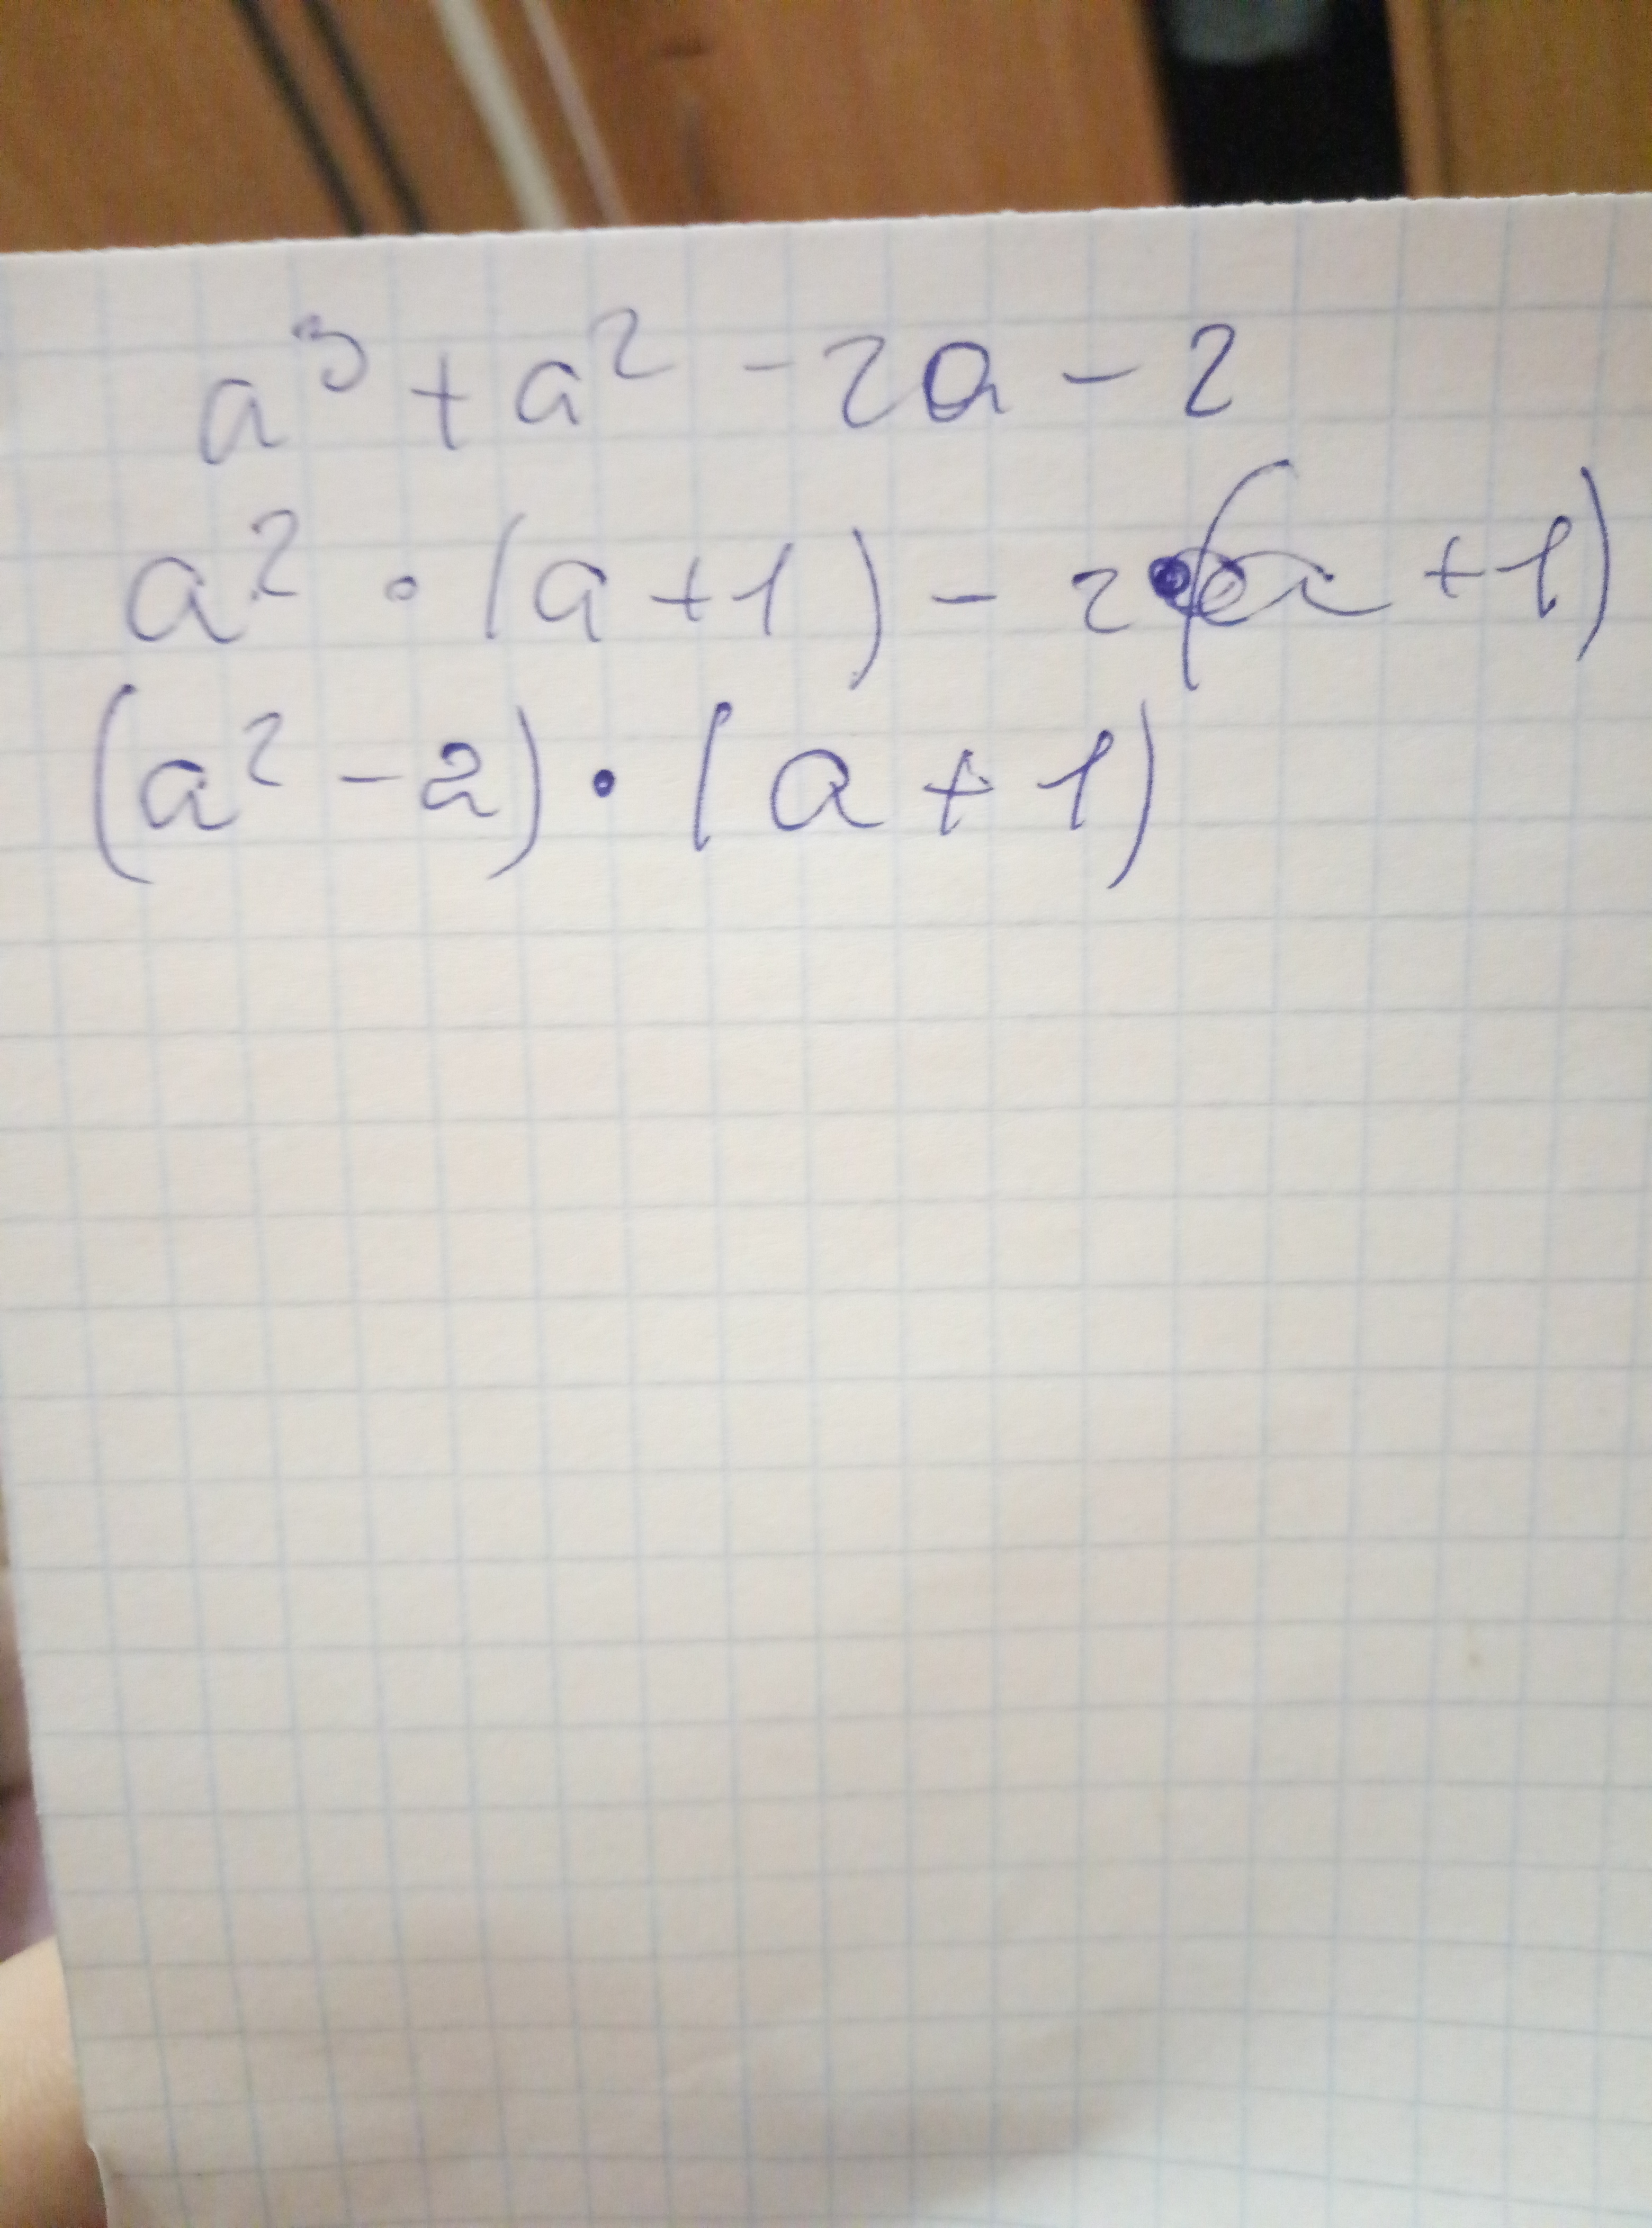 a³ + a² - 2a - 2
a² · (a + 1) - 2 · (a + 1)
(a² - 2) · (a + 1)